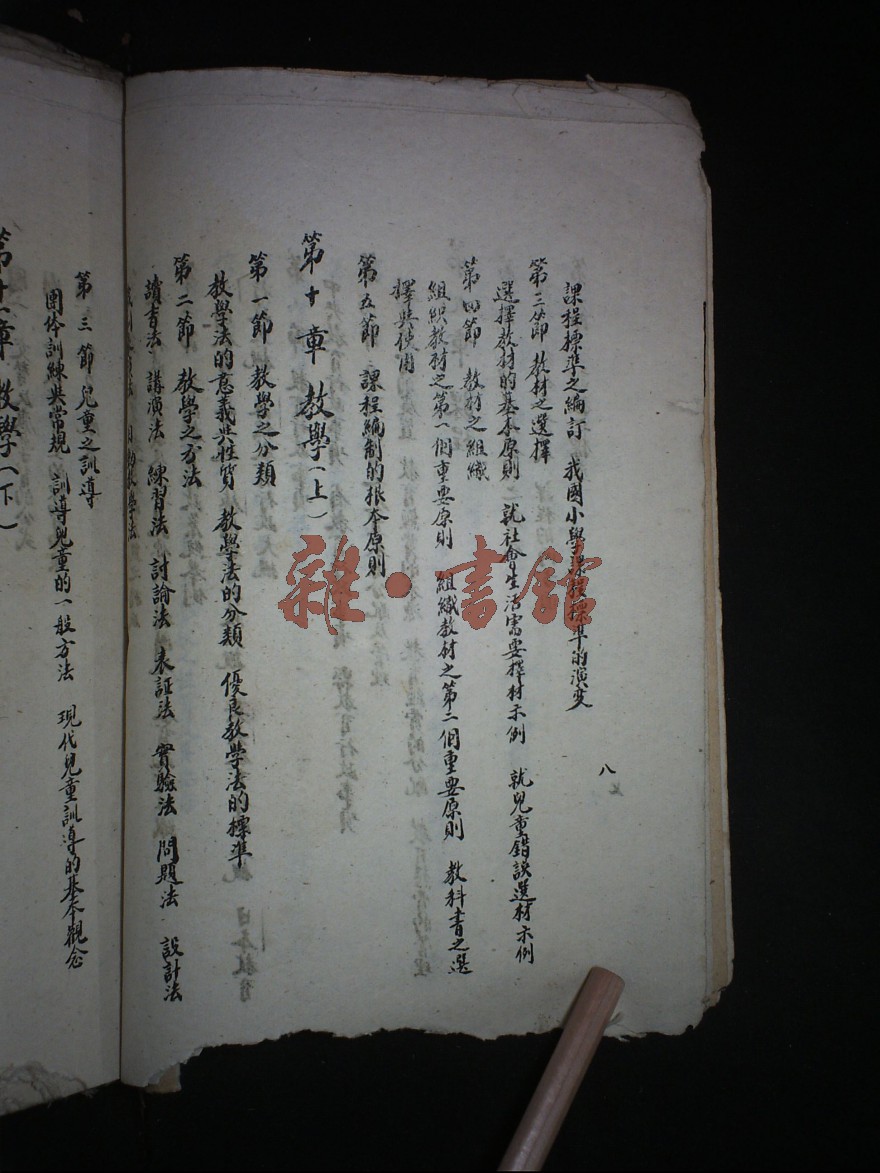 八
課程標準之編訂 我國小學課程標準的演变
第三節 教材之選擇
選擇教材的基本原則 就社會生活需要擇材示例 就兒童錯誤選材示例
第四節 教材之組織
組織教材之第一個重要原則 組織教材之第二個重要原則 教科書之選
擇與使用
第五節 課程編制的根本原則
第十章 教學（上）
第一節 教學之分類
教學法的意義與性質 教學法的分類 優良教學法的標準
第二節 教學之方法
讀書法 講演法 練習法 討論法 表証法 實驗法 問題法 設計法
教學法
第三節 兒童之訓導
團体訓練與常規 訓導兒童的一般方法 現代兒童訓導的基本觀念
第十一章 教學（下）
雜·書館